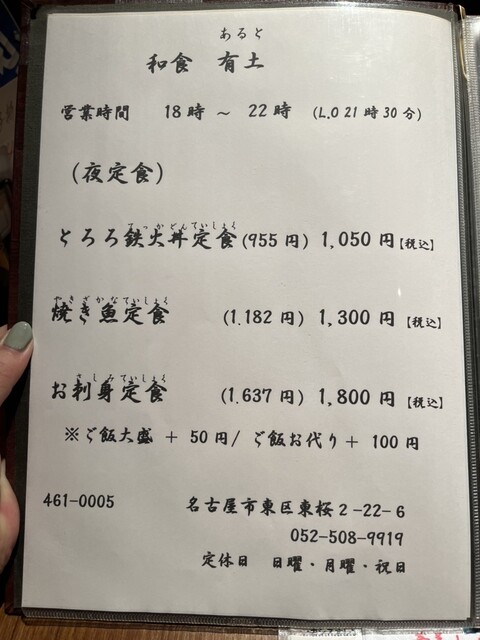 あると
和食 有土
営業時間 18時 ~ 22時 (L.O 21時30分)
(夜定食)
てっかどんていしょく
とろろ鉄火丼定食(955 円) 1,050 円【税込】
やきざかなていしょく
焼き魚定食 (1.182 円) 1,300 円【税込】
さしみていしょく
お刺身定食 (1.637 円) 1,800 円【税込】
※ご飯大盛 + 50 円/ ご飯お代り+ 100 円
461-0005 名古屋市東区東桜2-22-6
052-508-9919
定休日 日曜・月曜・祝日